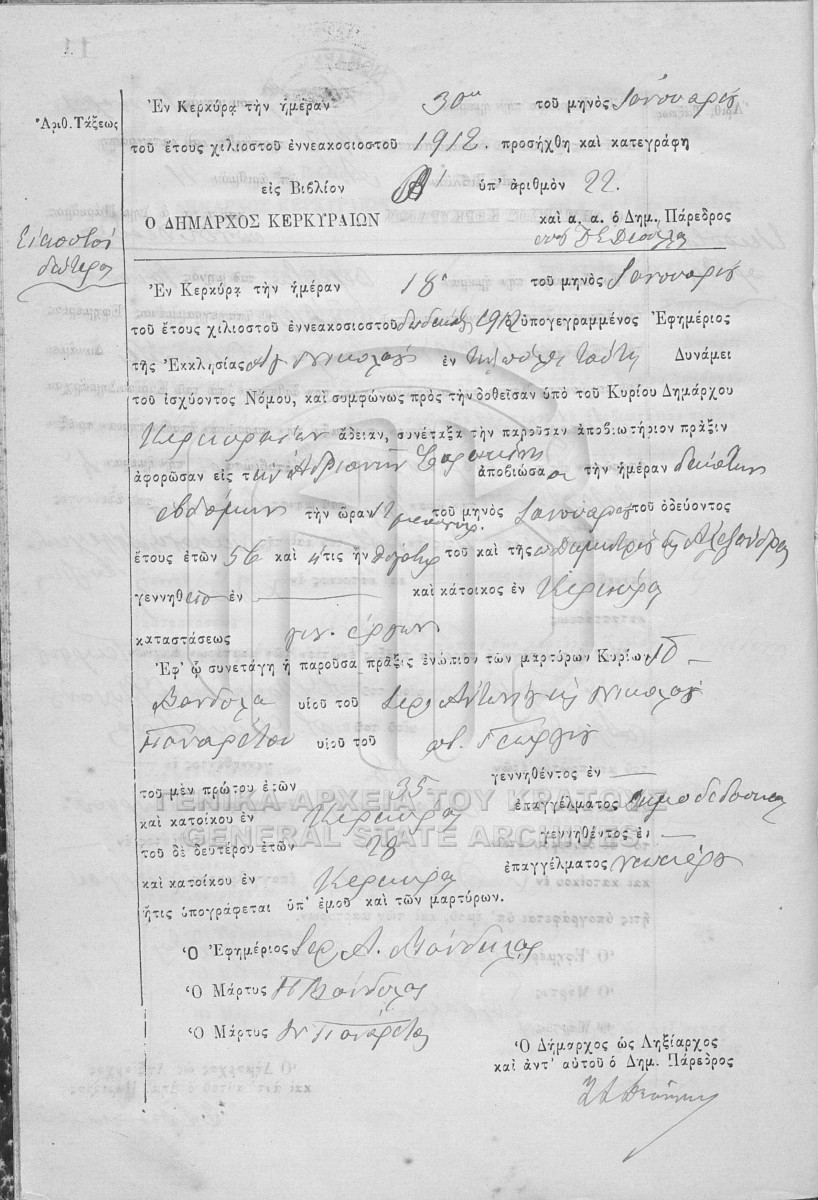 Ἐν Κερκύρᾳ τὴν ἡμέραν 30ην τοῦ μηνὸς Ἰανουαρίου
Ἀριθ. Τάξεως
τοῦ ἔτους χιλιοστοῦ ἐννεακοσιοστοῦ 1912. προσήχθη καὶ κατεγράφη
εἰς Βιβλίον Α' ὑπ' ἀριθμὸν 22.
Ο ΔΗΜΑΡΧΟΣ ΚΕΡΚΥΡΑΙΩΝ καὶ α. α. ὁ Δημ. Πάρεδρος
Εἰκοστοῦ
δεύτερος
Ἐν Κερκύρᾳ τὴν ἡμέραν 18 τοῦ μηνὸς Ἰανουαρίου
τοῦ ἔτους χιλιοστοῦ ἐννεακοσιοστοῦ δωδεκάτου 1912 ὑπογεγραμμένος Ἐφημέριος
τῆς Ἐκκλησίας Ἁγ Νικολάου ἐν τῇ πόλει ταύτῃ Δυνάμει
τοῦ ἰσχύοντος Νόμου, καὶ συμφώνως πρὸς τὴν δοθεῖσαν ὑπὸ τοῦ Κυρίου Δημάρχου
Κερκυραίων ἄδειαν, συνέταξα τὴν παροῦσαν ἀποβιωτήριον πρᾶξιν
ἀφορῶσαν εἰς τὴν Ἀδριανὴν ἀποβιώσασα τὴν ἡμέραν δεκάτην
ἑβδόμην τὴν ὥραν τοῦ μηνὸς Ἰανουαρίου τοῦ ὁδεύοντος
ἔτους ἐτῶν 56 καὶ ἥτις ἦν θυγάτηρ τοῦ καὶ τῆς π Δημητρίου Ἀλεξάνδρας
γεννηθεῖσα ἐν — καὶ κάτοικος ἐν Κερκύρᾳ
καταστάσεως
Ἐφ' ᾧ συνετάγη ἡ παροῦσα πρᾶξις ἐνώπιον τῶν μαρτύρων Κυρίων Π –
Βονδύλα υἱοῦ τοῦ Ἱερ. Ἀντωνίου καὶ Νικολάου
Παναρέτου υἱοῦ τοῦ Γεωργίου
τοῦ μὲν πρώτου ἐτῶν 35 γεννηθέντος ἐν —
καὶ κατοίκου ἐν Κερκύρᾳ ἐπαγγέλματος δημοδιδάσκαλος
τοῦ δὲ δευτέρου ἐτῶν 28 γεννηθέντος ἐν —
καὶ κατοίκου ἐν Κερκύρᾳ ἐπαγγέλματος
ἥτις ὑπογράφεται ὑπ' ἐμοῦ καὶ τῶν μαρτύρων.
Ὁ Ἐφημέριος Ἱερ. Α. Βόνδυλας
Ὁ Μάρτυς Π Βόνδυλας
Ὁ Μάρτυς Ν Πανάρετος
Ὁ Δήμαρχος ὡς Ληξίαρχος
καὶ ἀντ' αὐτοῦ ὁ Δημ. Πάρεδρος
ΓΕΝΙΚΑ ΑΡΧΕΙΑ ΤΟΥ ΚΡΑΤΟΥΣ
GENERAL STATE ARCHIVES